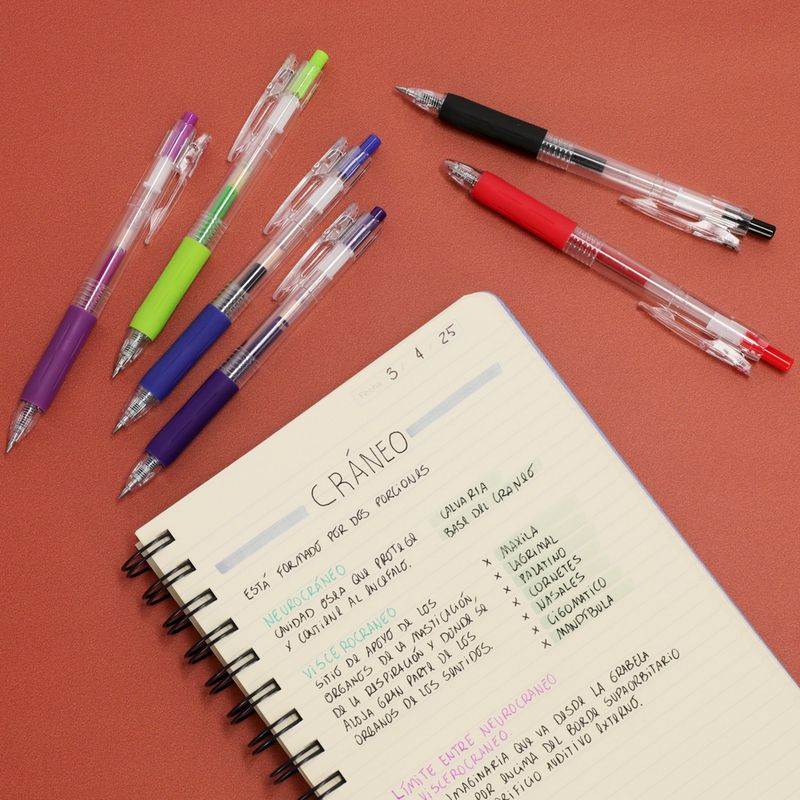 Fecha 3 / 4 / 25
CRÁNEO
ESTÁ FORMADO POR DOS PORCIONES
CALVARIA
BASE DEL CRANEO
NEUROCRÁNEO
CAVIDAD OSEA QUE PROTEGE
Y CONTIENE AL ENCEFALO.
VISCEROCRANEO
SITIO DE APOYO DE LOS
ORGANOS DE LA MASTICACIÓN,
DE LA RESPIRACIÓN Y DONDE SE
ALOJA GRAN PARTE DE LOS
ORGANOS DE LOS SENTIDOS.
x MAXILA
x LAGRIMAL
x PALATINO
x CORNETES
x NASALES
x CIGOMATICO
x MANDÍBULA
LÍMITE ENTRE NEUROCRANEO
VISCEROCRANEO.
IMAGINARIA QUE VA DESDE LA GRABELA
POR ENCIMA DEL BORDE SUPAORBITARIO
ORIFICIO AUDITIVO EXTERNO.